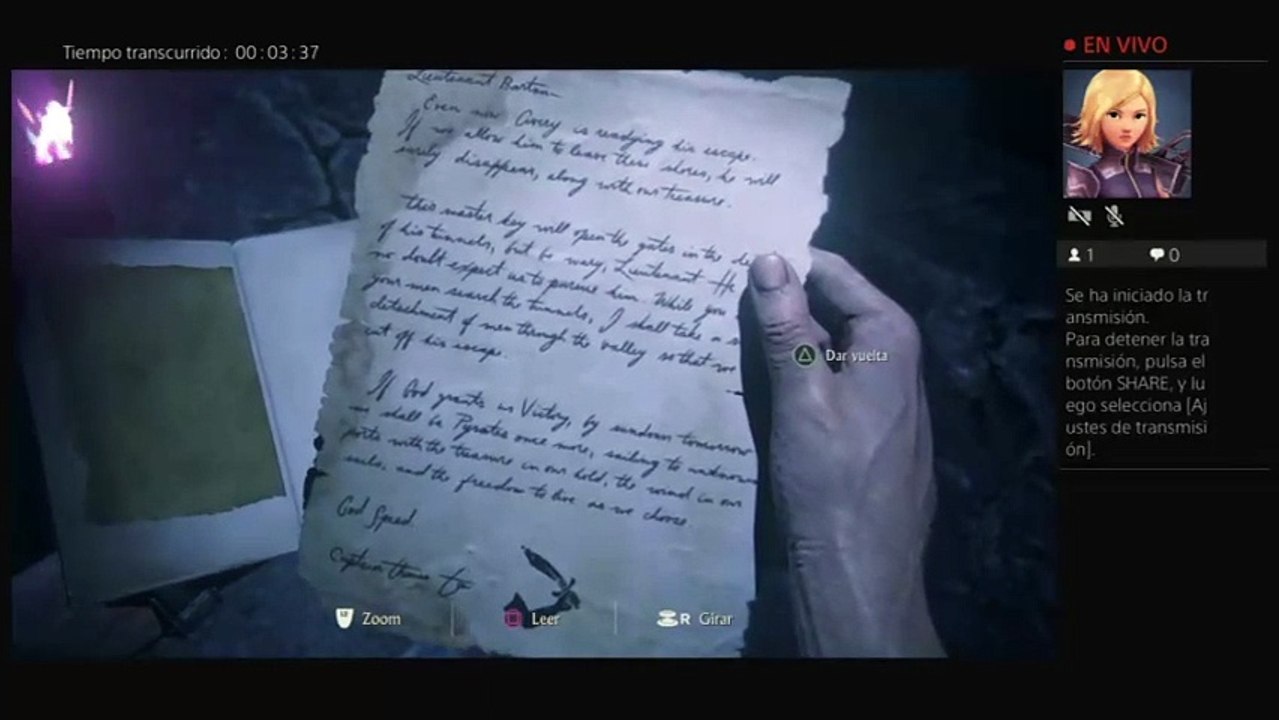 Tiempo transcurrido: 00:03:37
EN VIVO
Lieutenant Barton
Even now Avery is readying his escape.
If we allow him to leave these shores, he will
surely disappear, along with our treasure.
This master key will open the gates in the de
of his tunnels, but be wary, Lieutenant – He
no doubt expect us to pursue him. While you
your men search the tunnels, I shall take a s
detachment of men through the valley so that we
cut off his escape.
If God grants us Victory, by sundown tomorrow
we shall be Pyrates once more, sailing to unknown
ports with the treasure in our hold, the wind in our
sails, and the freedom to live as we choose.
God Speed.
Captain
Dar vuelta
Zoom
Leer
R Girar
1
0
Se ha iniciado la tr
ansmisión.
Para detener la tra
nsmisión, pulsa el
botón SHARE, y lu
ego selecciona [Aj
ustes de transmisi
ón].